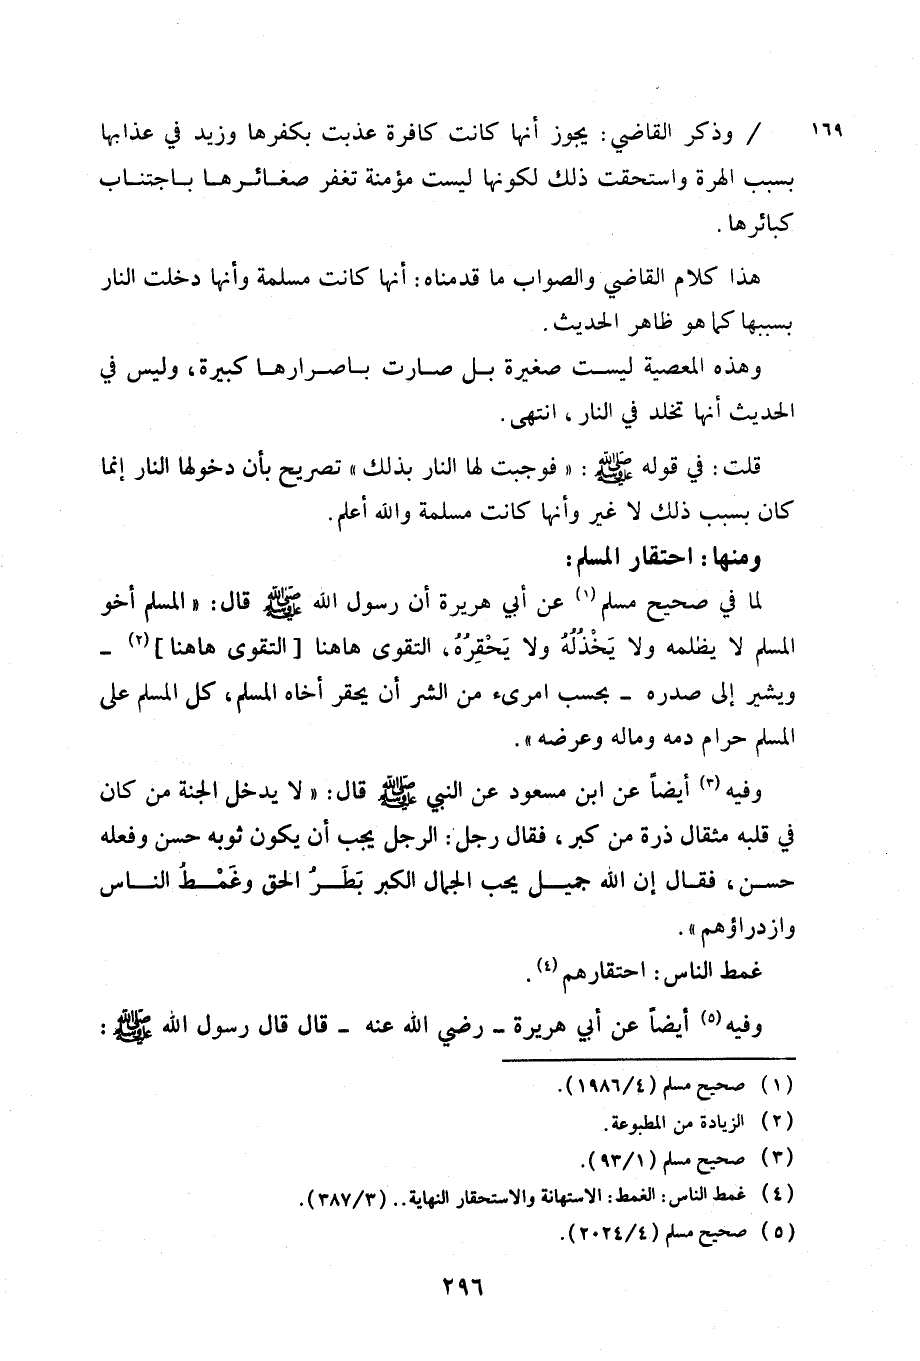 ١٦٩ / وذكر القاضي: يجوز أنها كانت كافرة عذبت بكفرها وزيد في عذابها
بسبب الهرة واستحقت ذلك لكونها ليست مؤمنة تغفر صغائرها باجتناب
كبائرها.
هذا كلام القاضي والصواب ما قدمناه: أنها كانت مسلمة وأنها دخلت النار
بسببها كما هو ظاهر الحديث.
وهذه المعصية ليست صغيرة بل صارت باصرارها كبيرة، وليس في
الحديث أنها تخلد في النار، انتهى.
قلت: في قوله ﷺ: « فوجبت لها النار بذلك » تصريح بأن دخولها النار إنما
كان بسبب ذلك لا غير وأنها كانت مسلمة والله أعلم.
ومنها: احتقار المسلم:
لما في صحيح مسلم(١) عن أبي هريرة أن رسول الله ﷺ قال: « المسلم أخو
المسلم لا يظلمه ولا يَخْذُلُهُ ولا يَحْقِرُهُ، التقوى هاهنا [ التقوى هاهنا ](٢) ـ
ويشير إلى صدره ـ بحسب امرىء من الشر أن يحقر أخاه المسلم، كل المسلم على
المسلم حرام دمه وماله وعرضه ».
وفيه(٣) أيضاً عن ابن مسعود عن النبي ﷺ قال: « لا يدخل الجنة من كان
في قلبه مثقال ذرة من كبر، فقال رجل: الرجل يجب أن يكون ثوبه حسن وفعله
حسن، فقال إن الله جميل يحب الجمال الكبر بَطَرُ الحق وغَمْطُ الناس
وازدراؤهم ».
غمط الناس: احتقارهم(٤).
وفيه(٥) أيضاً عن أبي هريرة ـ رضي الله عنه ـ قال قال رسول الله ﷺ:
(١) صحيح مسلم (١٩٨٦/٤).
(٢) الزيادة من المطبوعة.
(٣) صحيح مسلم (٩٣/١).
(٤) غمط الناس: الغمط: الاستهانة والاستحقار النهاية.. (٣٨٧/٣).
(٥) صحيح مسلم (٢٠٢٤/٤).
٢٩٦